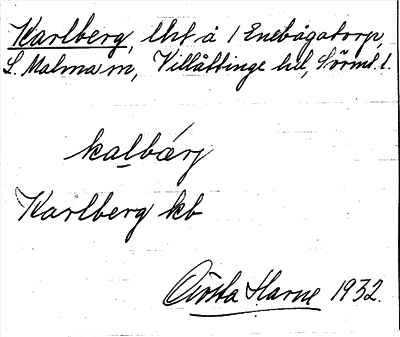 Karlberg, lht å 1 Enebågatorp,
L. Malma sn, Villåttinge hd, Sörml. l.
kalbärj
Karlberg kb
Gösta Harne 1932.